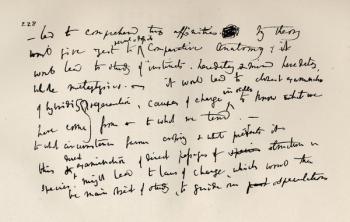 228
— led to comprehend true affinities. My theory
would give zest to recent & fossil Comparative Anatomy; & it
would lead to study of instincts, heredity & mind heredity,
whole metaphysics. — it would lead to closest examination
of hybridity & generation, causes of change in order to know what we
have come from & to what we tend. —
to what circumstances favour crossing & what prevents it
this & direct examination of direct passages of structure in
species, might lead to laws of change, which would then
be main object of study, to guide our speculations